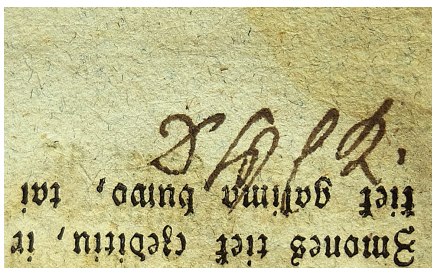 Zmones tiek czedikiu, ir
tiek galima buwo, tai